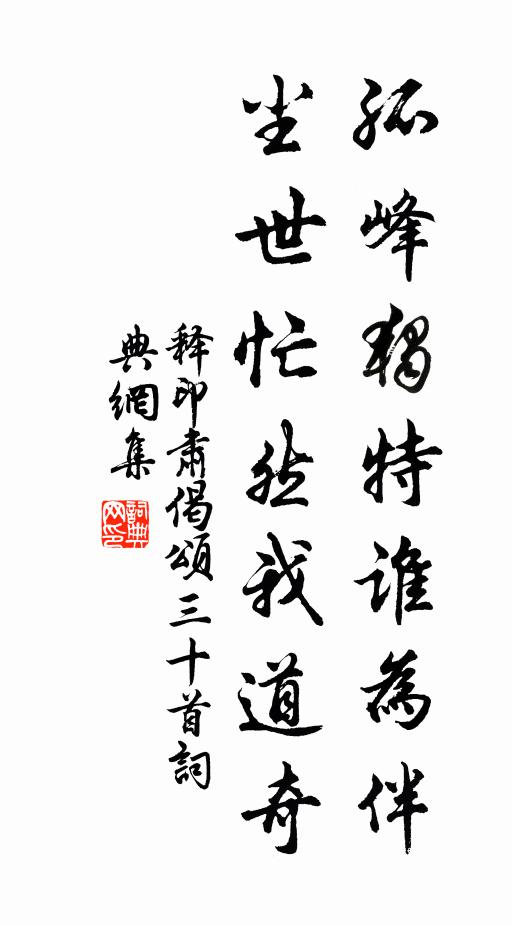 孤峰獨特誰為伴
尘世忙然我道奇
释印肅偈頌三十首詞
典網集
詞典网印